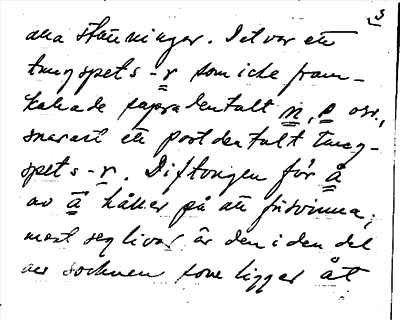 3
alla ställningar. Det var ett
tungspets-r som icke fram-
kallade supradentalt n, l osv.,
snarast ett postdentalt tung-
spets-r. Diftongen för å
av ā håller på att försvinna;
mest seglivar är den i den del
av socknen som ligger åt